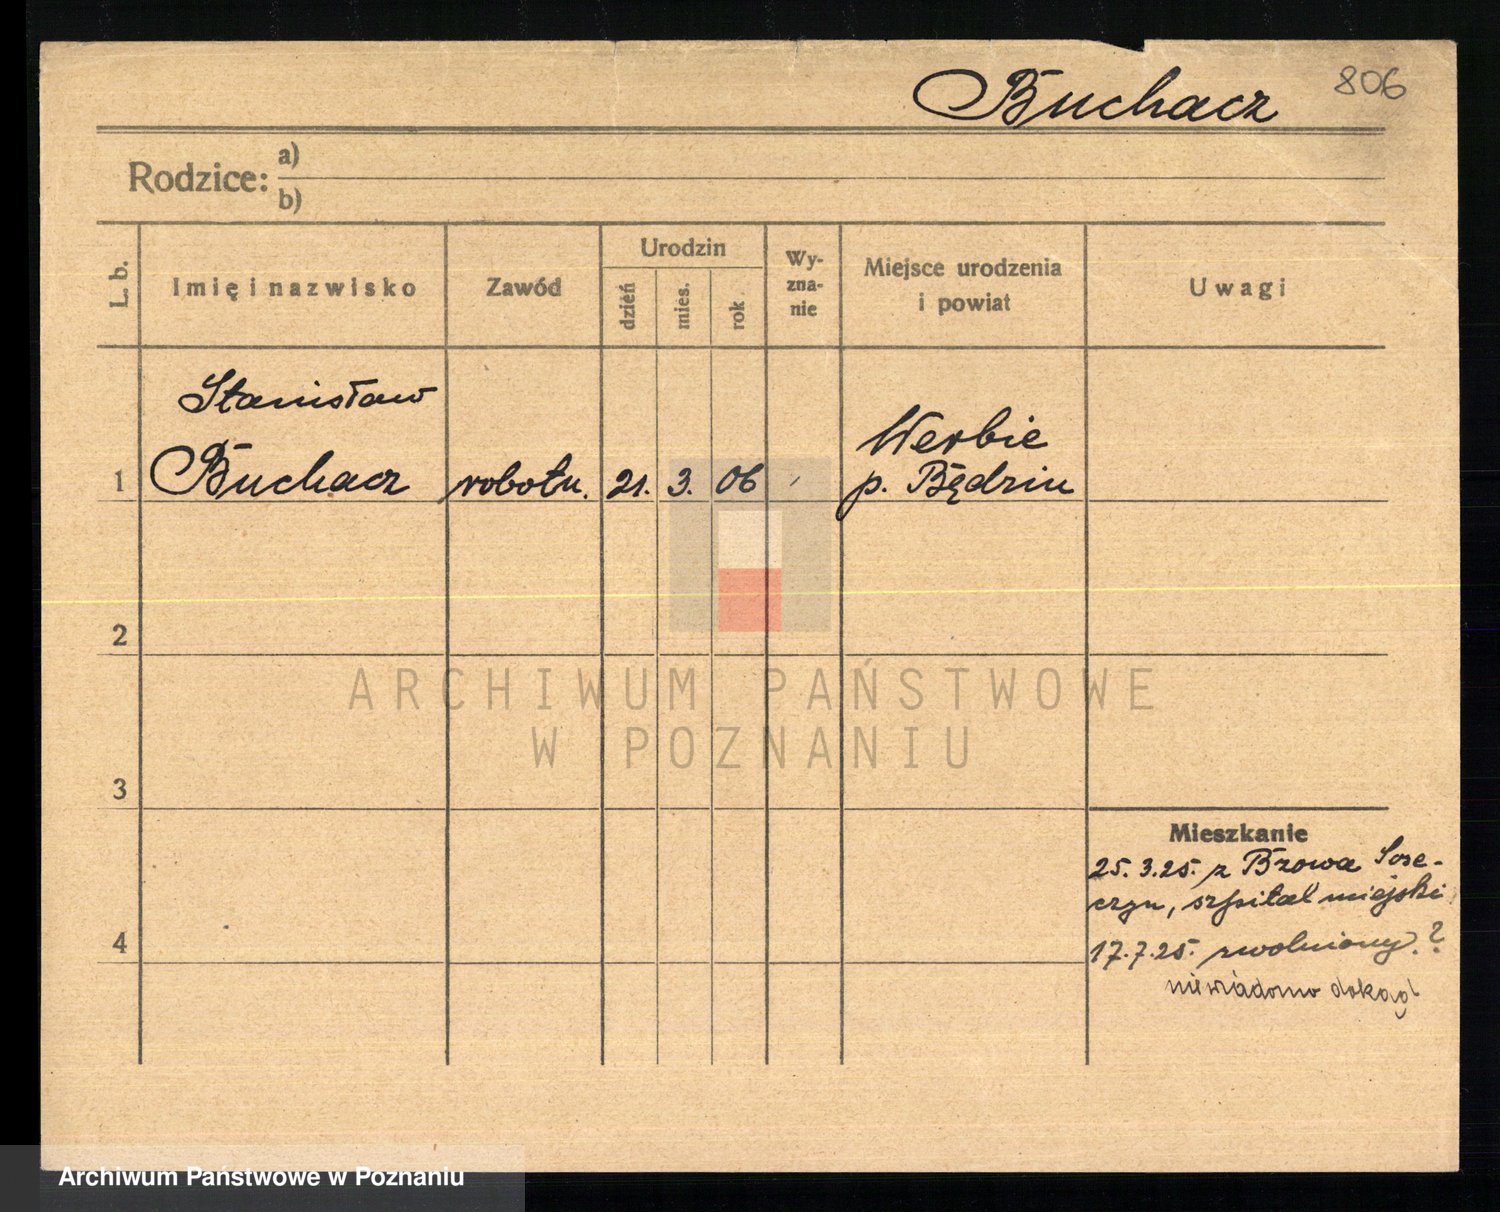 Buchacz
806
Rodzice:
a)
b)
L. b.
Imię i nazwisko
Zawód
Urodzin
dzień
mies.
rok
Wy-
zna-
nie
Miejsce urodzenia
i powiat
Uwagi
Stanisław
1 Buchacz robotn. 21. 3. 06
Werbie
p. Będzin
2
3
4
Mieszkanie
25. 3. 25. z
szpital miejski
17. 7. 25. zwolniony?
niewiadomo dokąd
ARCHIWUM PAŃSTWOWE
W POZNANIU
Archiwum Państwowe w Poznaniu